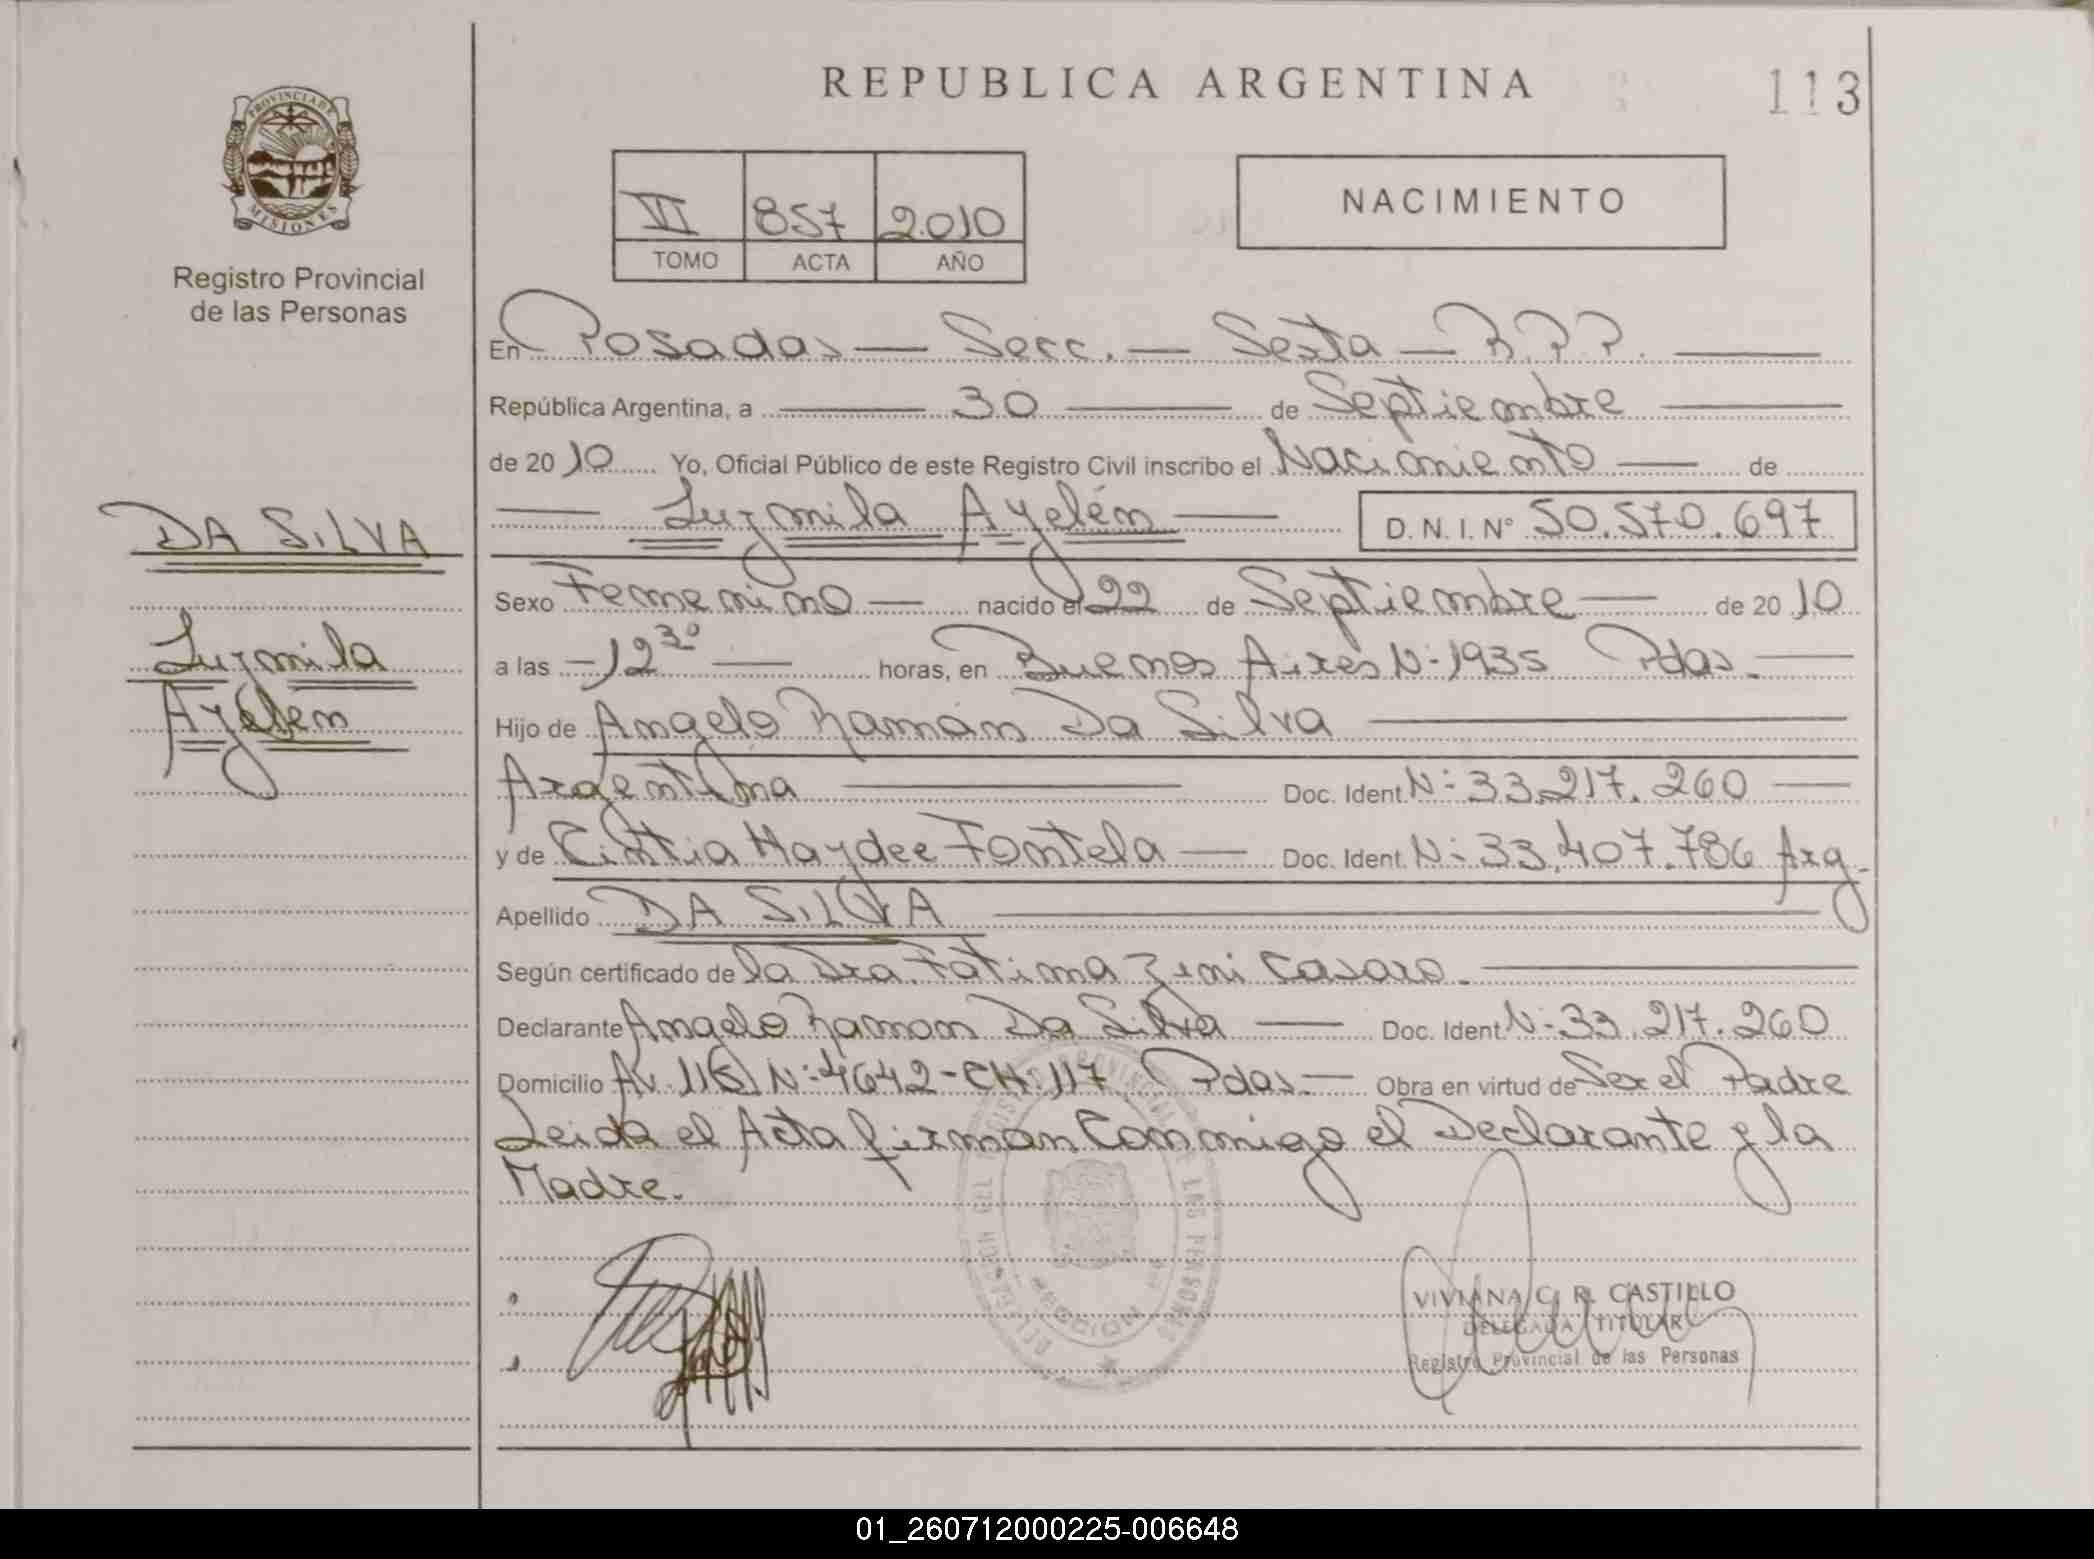 REPUBLICA ARGENTINA
113
PROVINCIA DE MISIONES
Registro Provincial
de las Personas
VI 857 2010
TOMO ACTA AÑO
NACIMIENTO
En Posadas — Secc. — Sexta — R.P.P. —
República Argentina, a — 30 — de Septiembre —
de 2010 Yo, Oficial Público de este Registro Civil inscribo el Nacimiento — de
— Luzmila Ayelén — D.N.I. N° 50.570.697
DA SILVA
Luzmila
Ayelen
Sexo Femenino — nacido el 22 de Septiembre — de 2010
a las — 12 30 — horas, en Buenos Aires N: 1935 Pdas. —
Hijo de Angelo Ramón Da Silva —
Argentina — Doc. Ident. N: 33.217.260 —
y de Cintia Haydee Fontela — Doc. Ident. N: 33.407.786 Arg.
Apellido DA SILVA —
Según certificado de la Dra. Fatima Casaro. —
Declarante Angelo Ramon Da Silva — Doc. Ident. N: 33.217.260
Domicilio Av. N: 4642 - CH: 117 Pdas. — Obra en virtud de Ser el Padre
Leida el Acta firman Conmigo el Declarante y la
Madre.
VIVIANA C. R. CASTILLO
DELEGADA TITULAR
Registro Provincial de las Personas
01_260712000225-006648